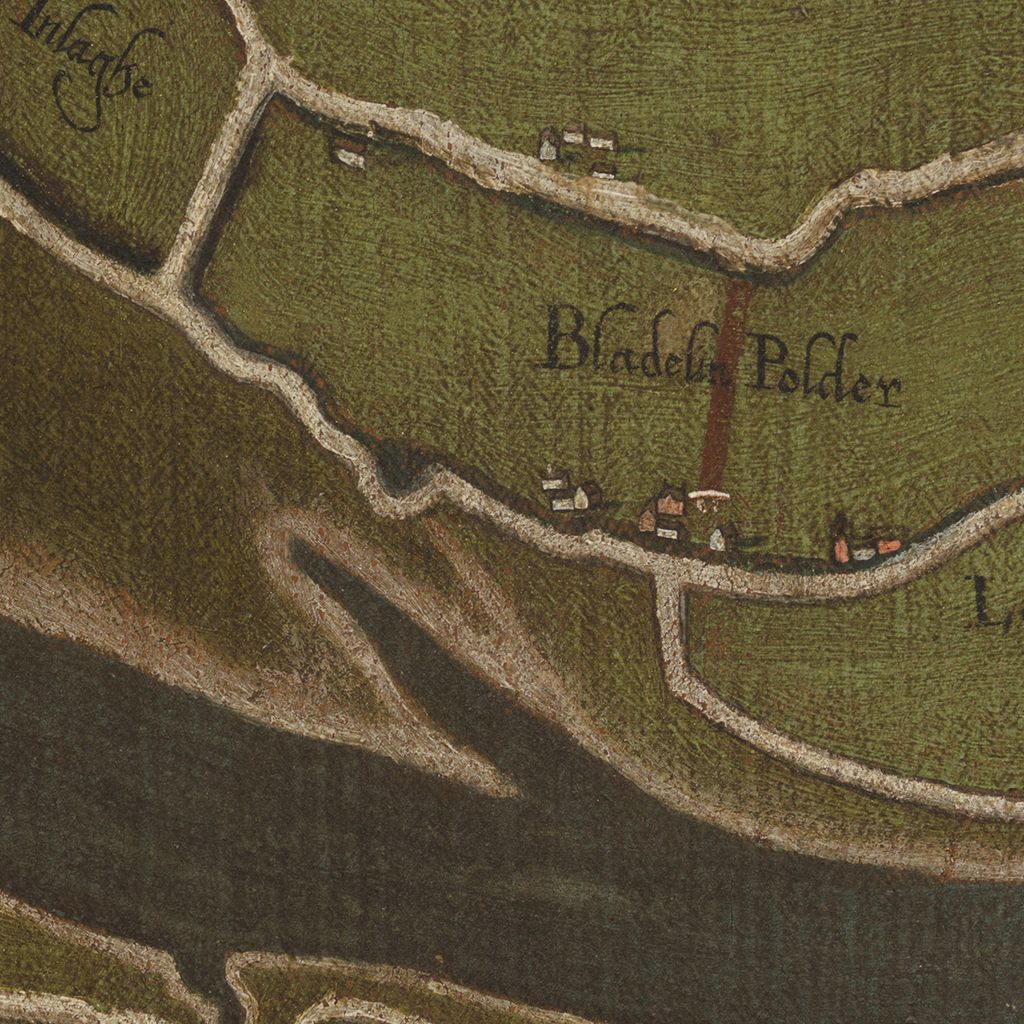 Inlaghe
Bladelin Polder